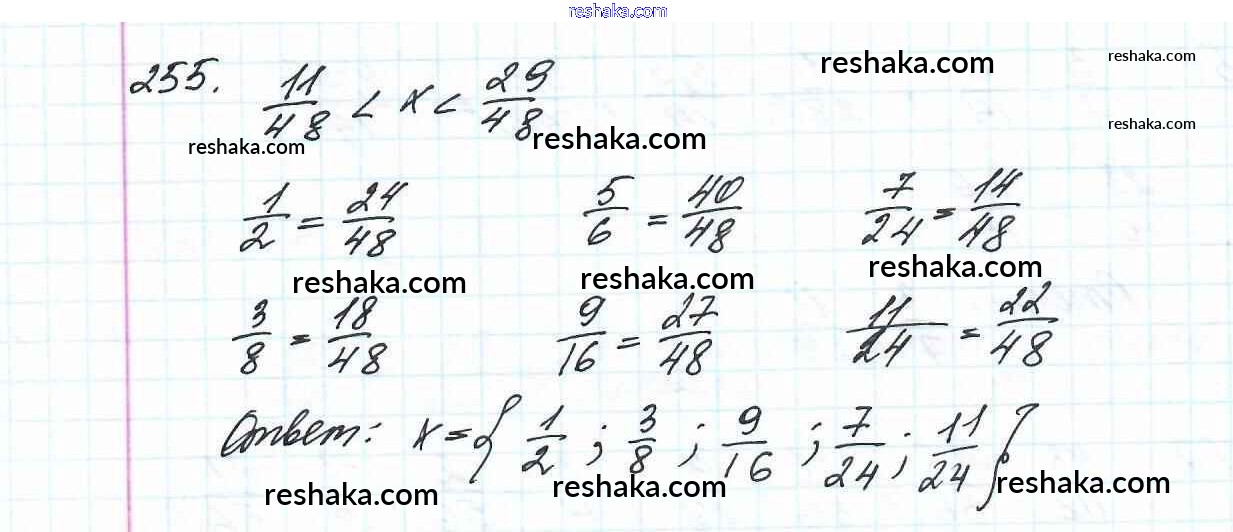 reshaka.com
255. 11/48 < x < 29/48
reshaka.com
reshaka.com
reshaka.com
reshaka.com
reshaka.com
1/2 = 24/48 5/6 = 40/48 7/24 = 14/48
reshaka.com
reshaka.com
reshaka.com
3/8 = 18/48 9/16 = 27/48 11/24 = 22/48
Ответ: x = { 1/2 ; 3/8 ; 9/16 ; 7/24 ; 11/24 }
reshaka.com
reshaka.com
reshaka.com